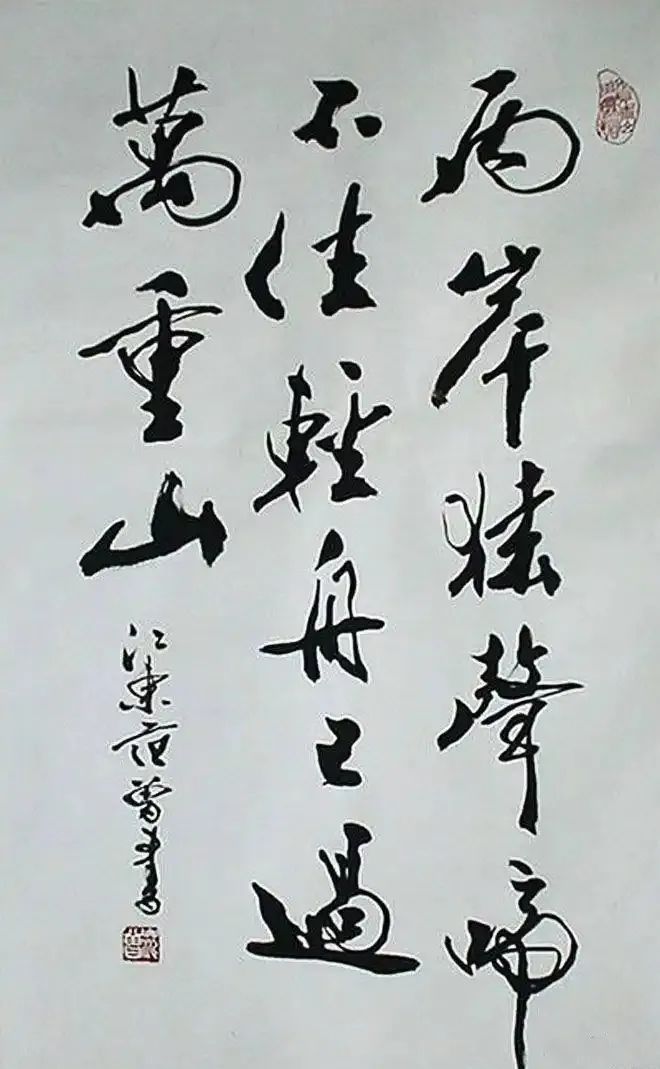 兩岸猿聲啼
不住輕舟已過
萬重山
江東范曾書
范曾